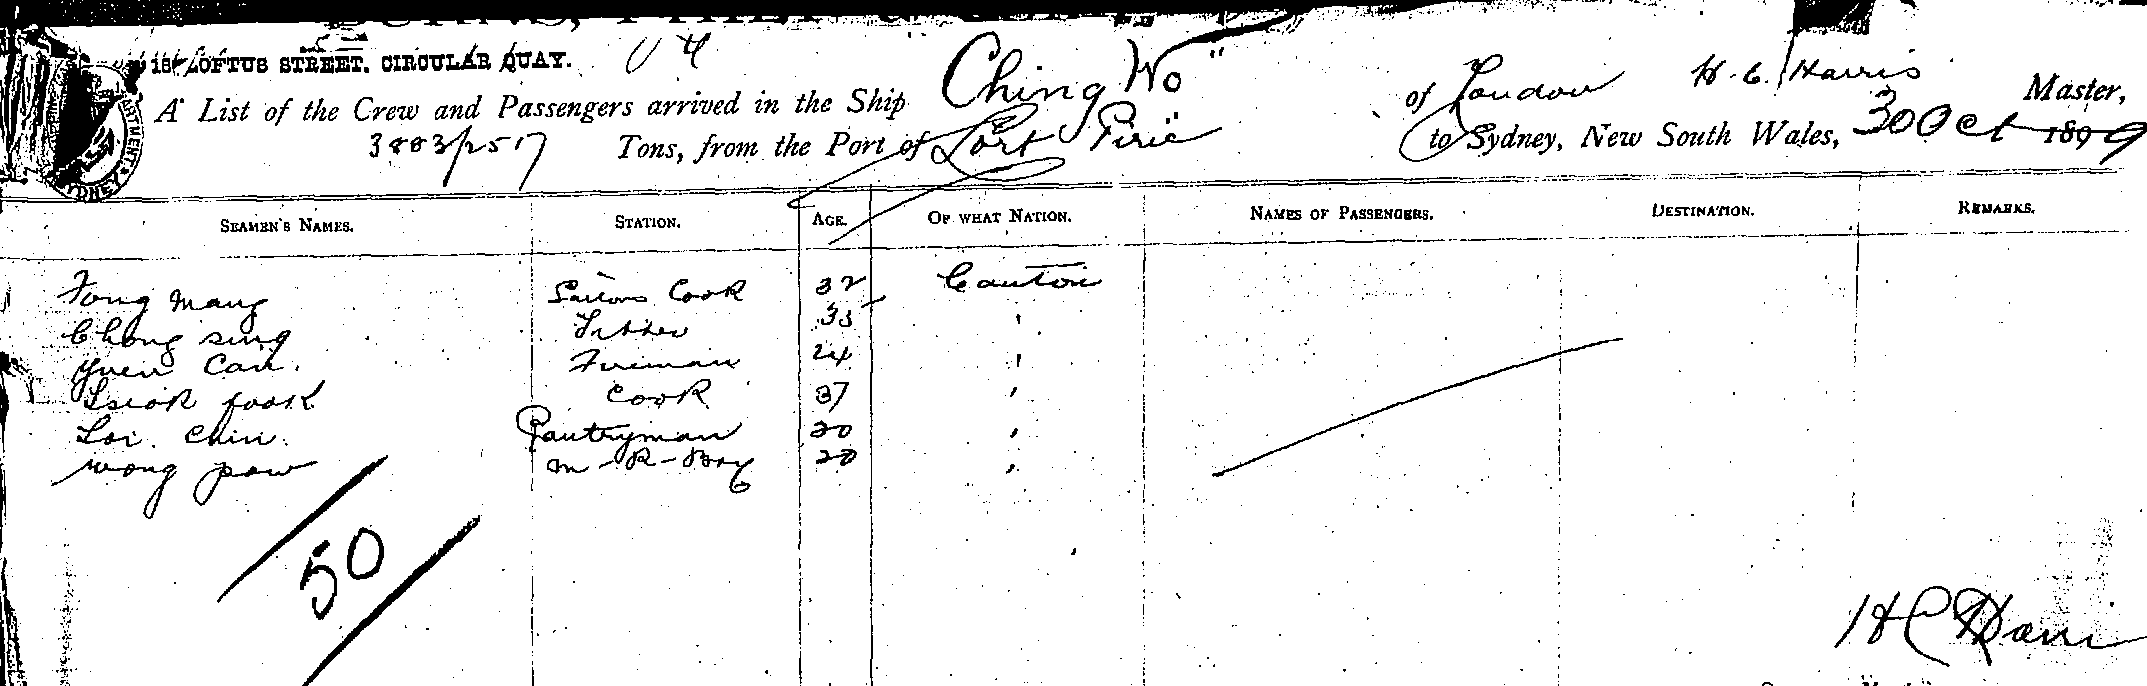 18 LOFTUS STREET. CIRCULAR QUAY.
A List of the Crew and Passengers arrived in the Ship Ching Wo" of London H. C. Harris Master,
3883/2517 Tons, from the Port of Port Pirie to Sydney, New South Wales, 30 Oct 1899
SEAMEN'S NAMES. STATION. AGE. OF WHAT NATION. NAMES OF PASSENGERS. DESTINATION. REMARKS.
Fong Mang Sailors Cook 32 Canton
Chong sing Fitter 35 "
Yuen Can. Fireman 24 "
fook Cook 37 "
Loi. Chin. Pantryman 20 "
Wong paw M-R-Boy 20 "
50
H C Harris